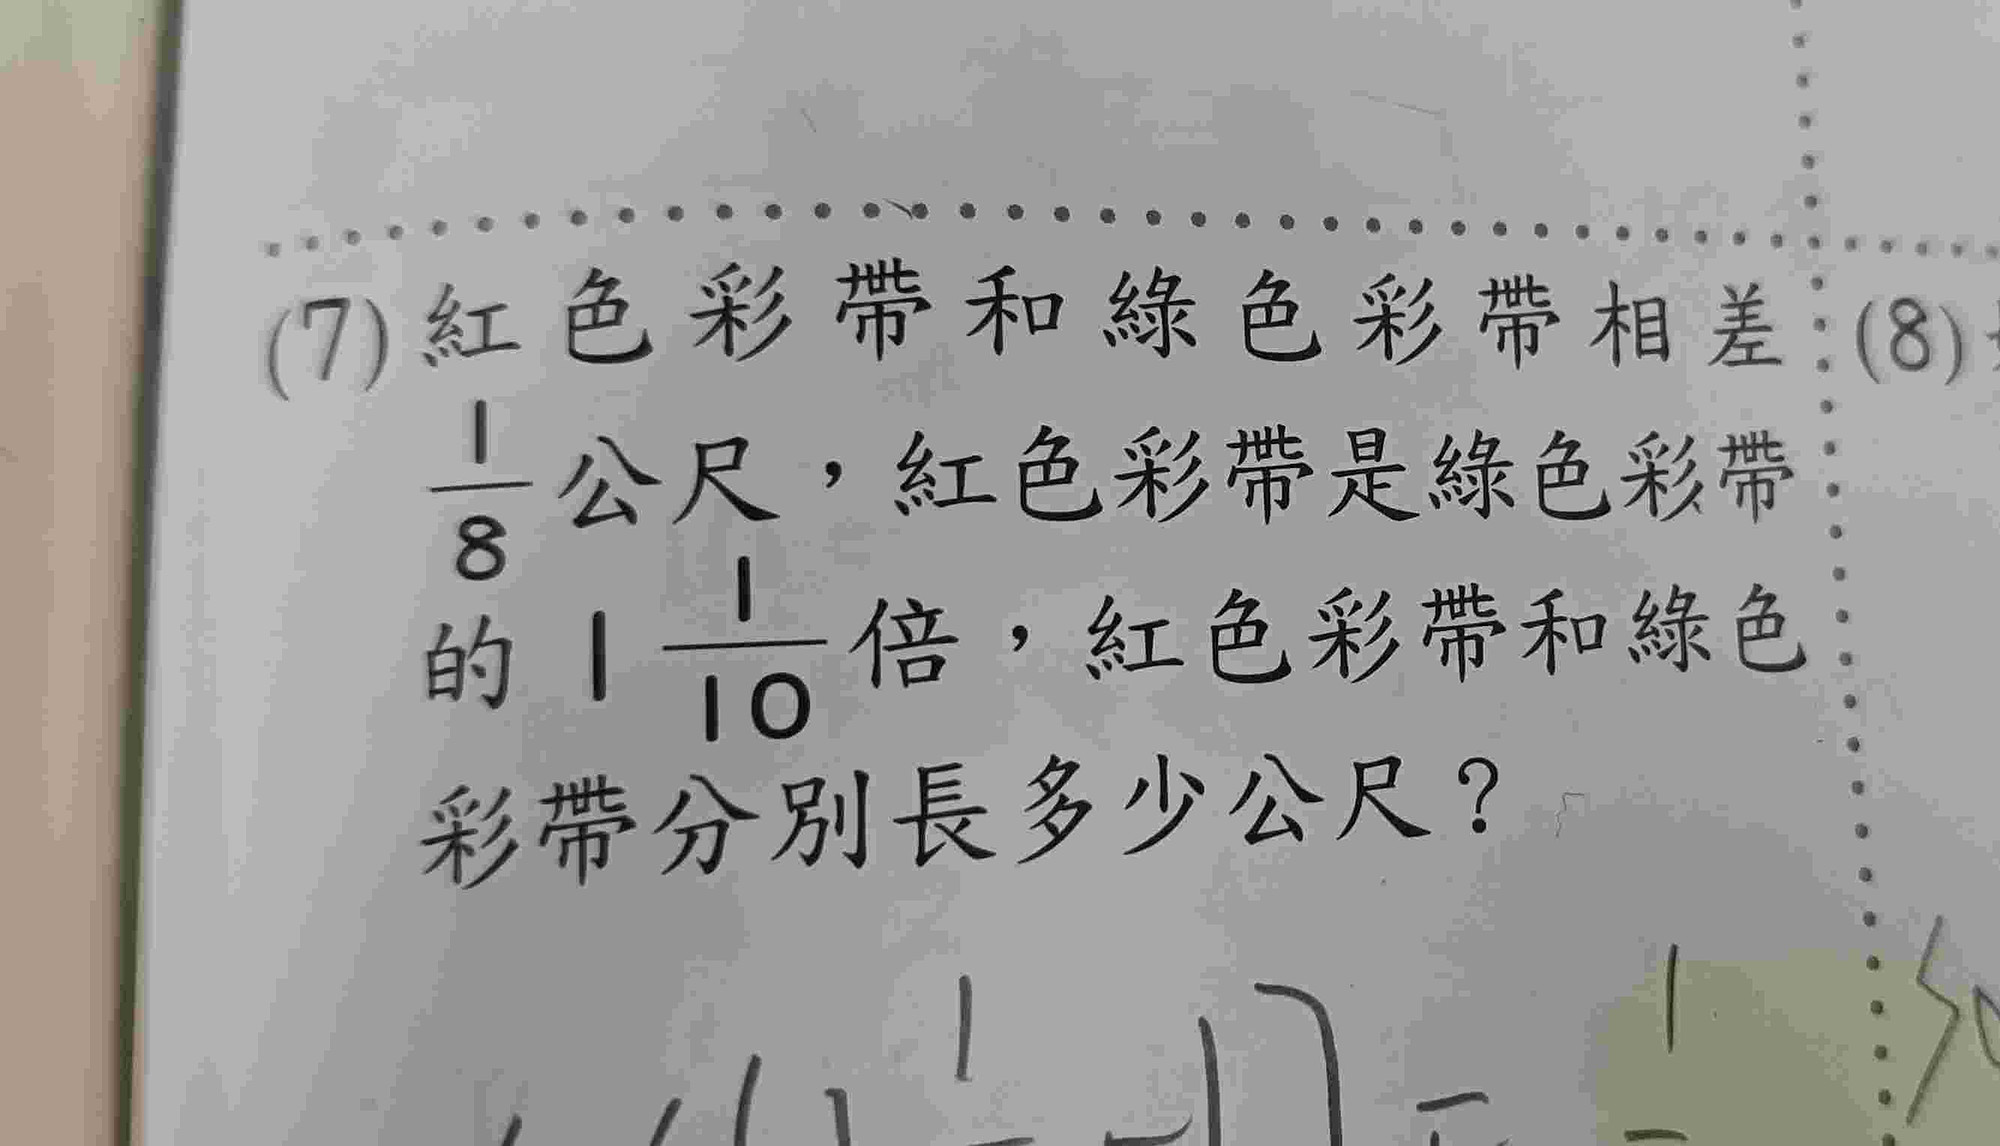 (7)紅色彩帶和綠色彩帶相差
1/8公尺，紅色彩帶是綠色彩帶
的1 1/10倍，紅色彩帶和綠色
彩帶分別長多少公尺？
(8)